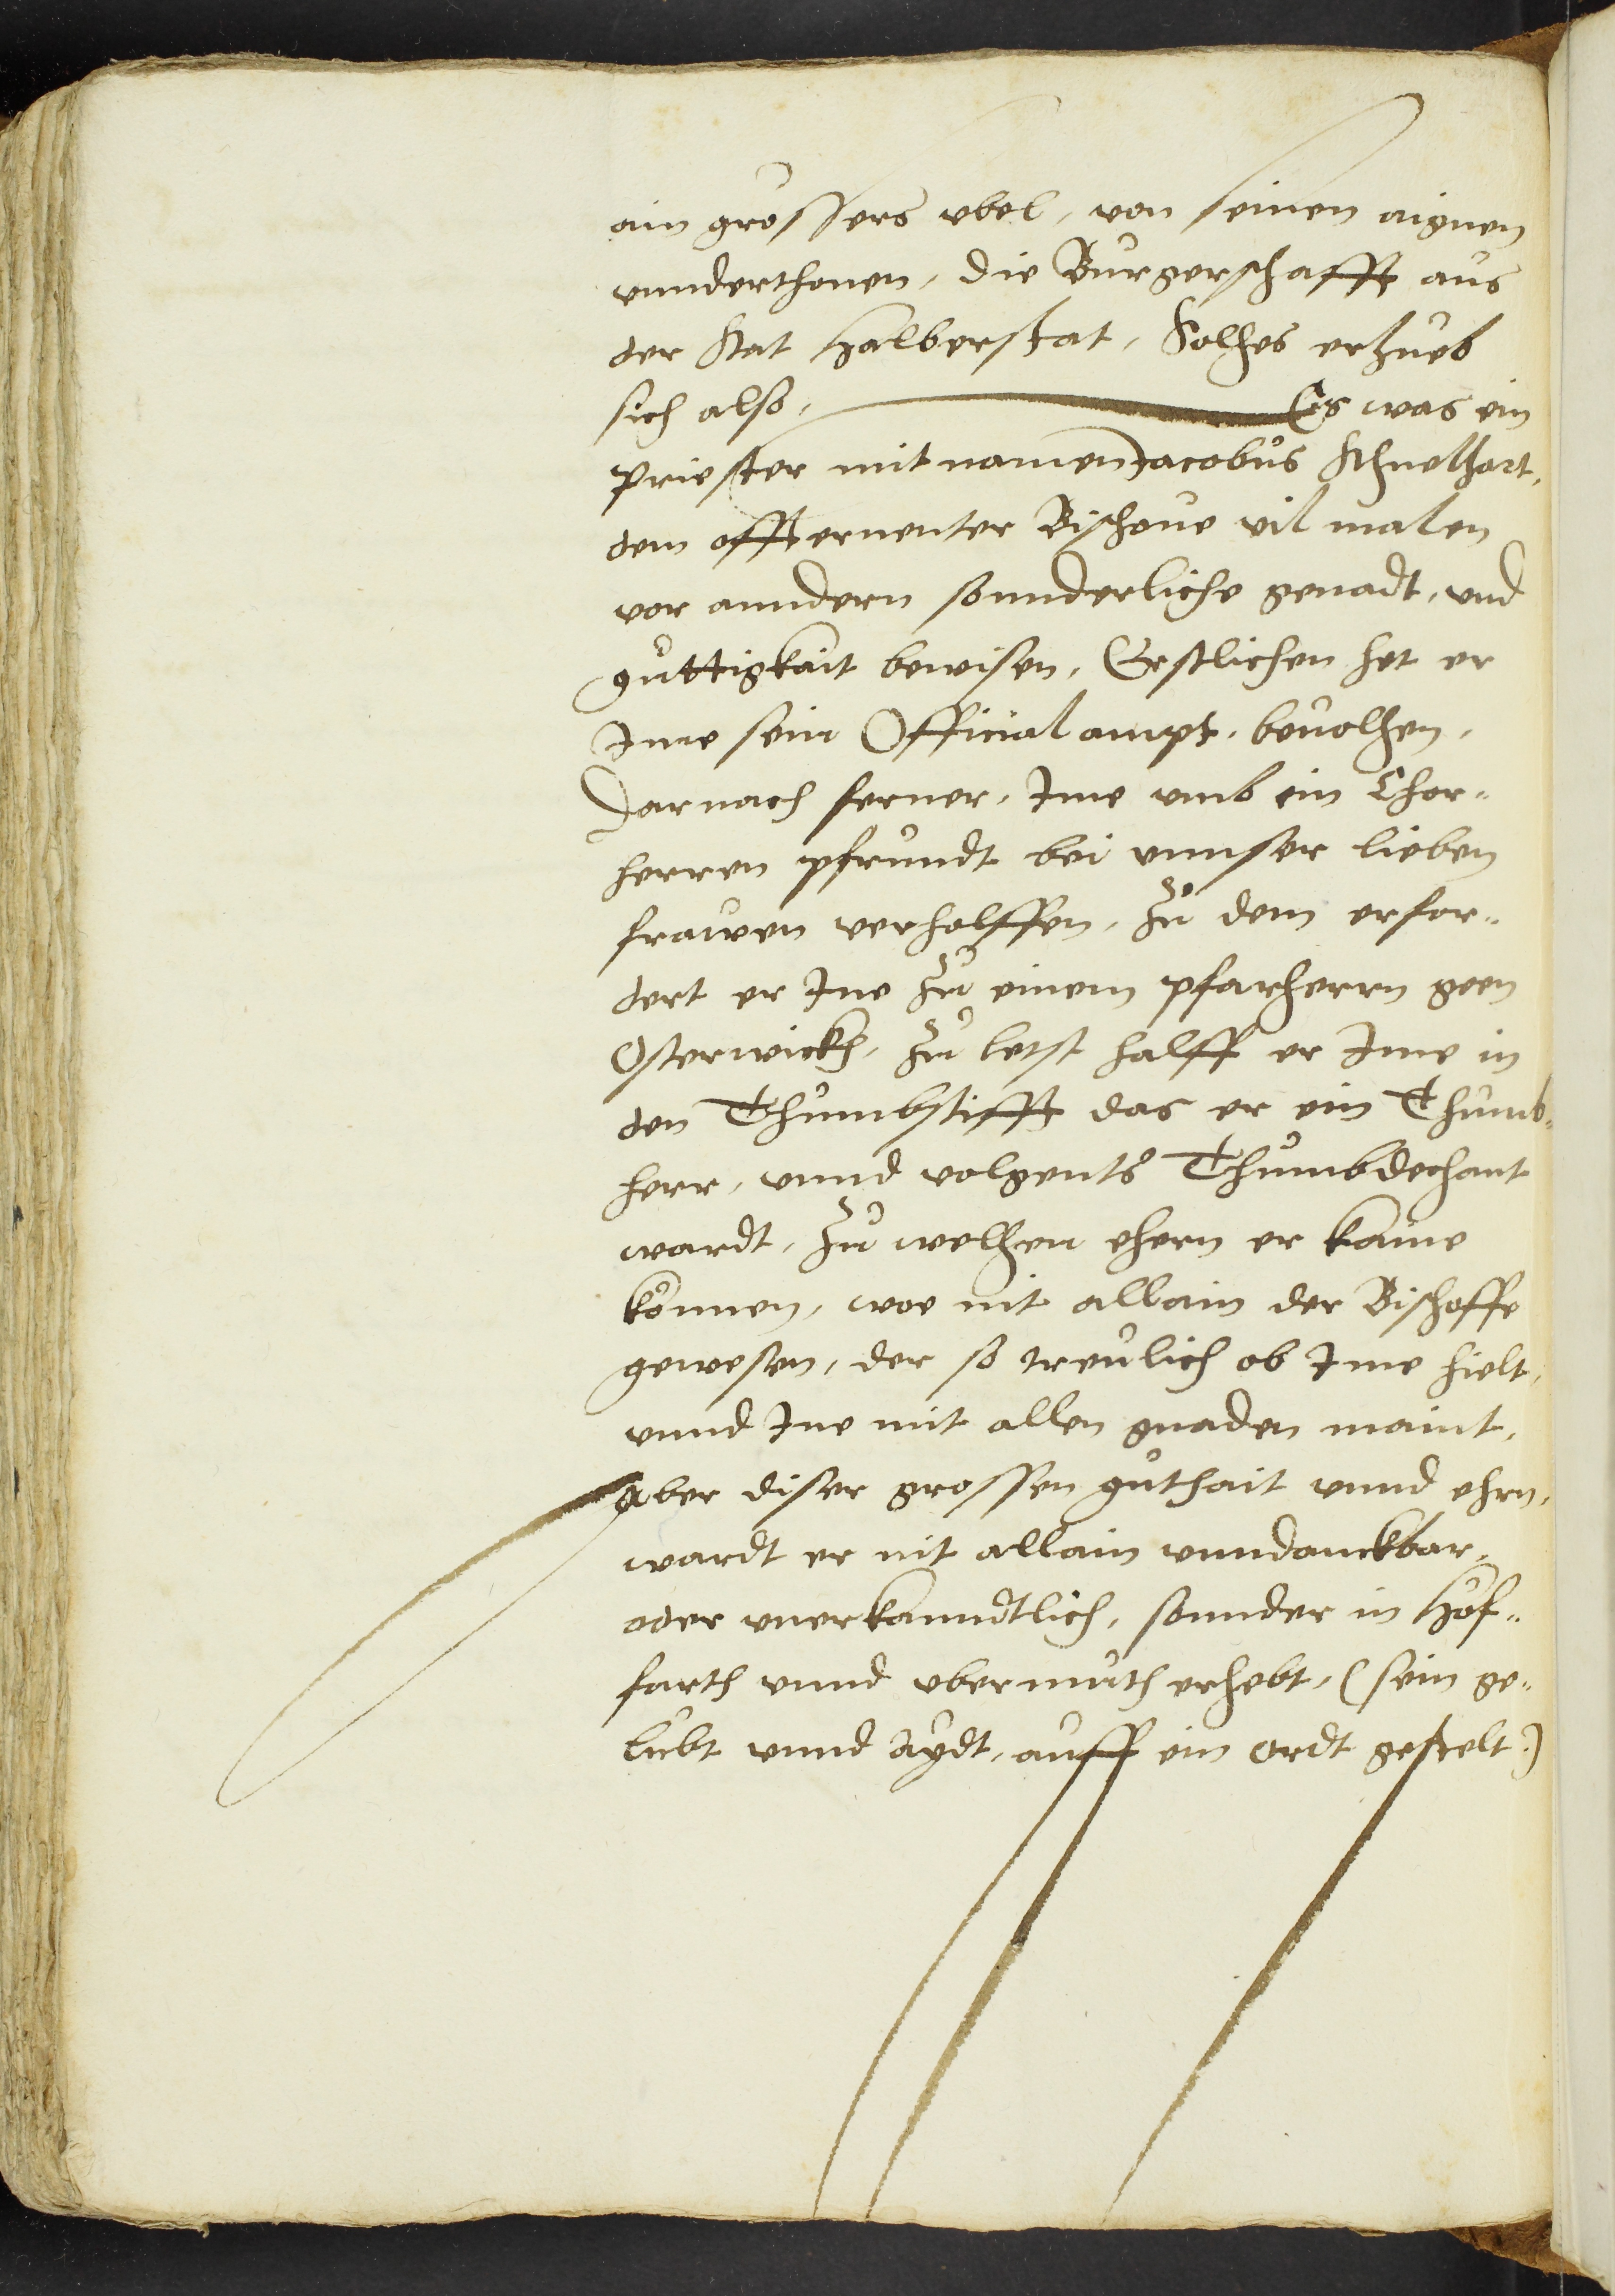 ain grossers vbel, von seinen aignen
vnnderthonen, die Burgerschafft aus
der Stat Halberstat, Solhes erhueb
sich also, Es was ein
Priester mit namen Jacobus Schnelhart,
dem offternenter Bischoue vil malen
vor anndern sonnderliche genadt, vnd
guttigkait bewisen, Erstlichen het er
Ime sein Official ampt, beuolhen,
Darnach ferner, Ime vmb ein Chor-
herren pfrundt bei vnnser lieben
frawen verholffen, Zu dem erfor-
dert er Ine zu einem pfarherrn geen
Osterwickh, Zu letst halff er Ime in
den Thumbstifft das er ein Thumb-
herr, vnnd volgents Thumbdechant
wardt, Zu welhen ehern er kaine
können, woe nit allain der Bischoffe
gewesen, der so treulich ob Ime hielt,
vnnd Ine mit allen gnaden maint,
Aber diser grossen guthait vnnd ehrn,
wardt er nit allain vnndanckbar,
oder vnerkanndtlich, sonnder in Hof-
farth vnnd vbermuth erhebt, (sein ge-
lubt vnnd Aydt, auff ein ordt gestelt)